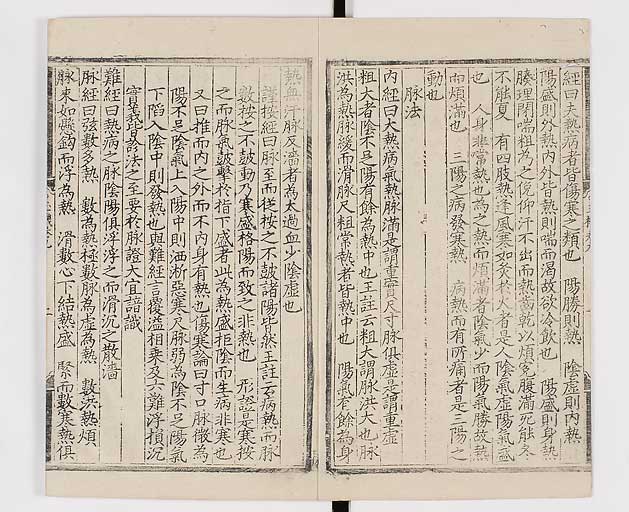 經曰夫熱病者皆傷寒之類也　陽勝則熱　陰虛則內熱
陽盛則外熱內外皆熱則喘而渴故欲冷飲也　陽盛則身熱
腠理閉喘粗為之俛仰汗不出而熱齒乾以煩冤腹滿死能冬
不能夏　有四肢熱逢風寒如炙於火者是人陰氣虛陽氣盛
也　人身非常熱也為之熱而煩滿者陰氣少而陽氣勝故熱
而煩滿也　三陽之病發寒熱　病熱而有所痛者是三陽之
動也
脉法
內經曰大熱病氣熱脉滿是謂重實尺寸脉俱虛是謂重虛
粗大者陰不足陽有餘為熱中也王註云粗大謂脉洪大也脉
洪為熱脉緩而滑脉尺粗常熱者皆熱中也　陽氣有餘為身
熱血汗脉反濇者為太過血少陰虛也
謹按經曰脉至而從按之不鼓諸陽皆然王註云病熱而脉
數按之不鼓動乃寒盛格陽而致之非熱也　形證是寒按
之而脉氣鼓擊於指下盛者此為熱盛拒陰而生病非寒也
又曰推而內之外而不內身有熱也傷寒論曰寸口脉微為
陽不足陰氣上入陽中則洒淅惡寒尺脉弱為陰不足陽氣
下陷入陰中則發熱也與難經言覆溢相乘及六難浮損沉
實義皆診法之至要於脉證大宜諳識
難經曰熱病之脉陰陽俱浮浮之而滑沉之散濇
脉經曰弦數多熱　數為熱極數脉為虛為熱　數洪熱煩
脉來如懸鈎而浮為熱　滑數心下結熱盛　緊而數寒熱俱